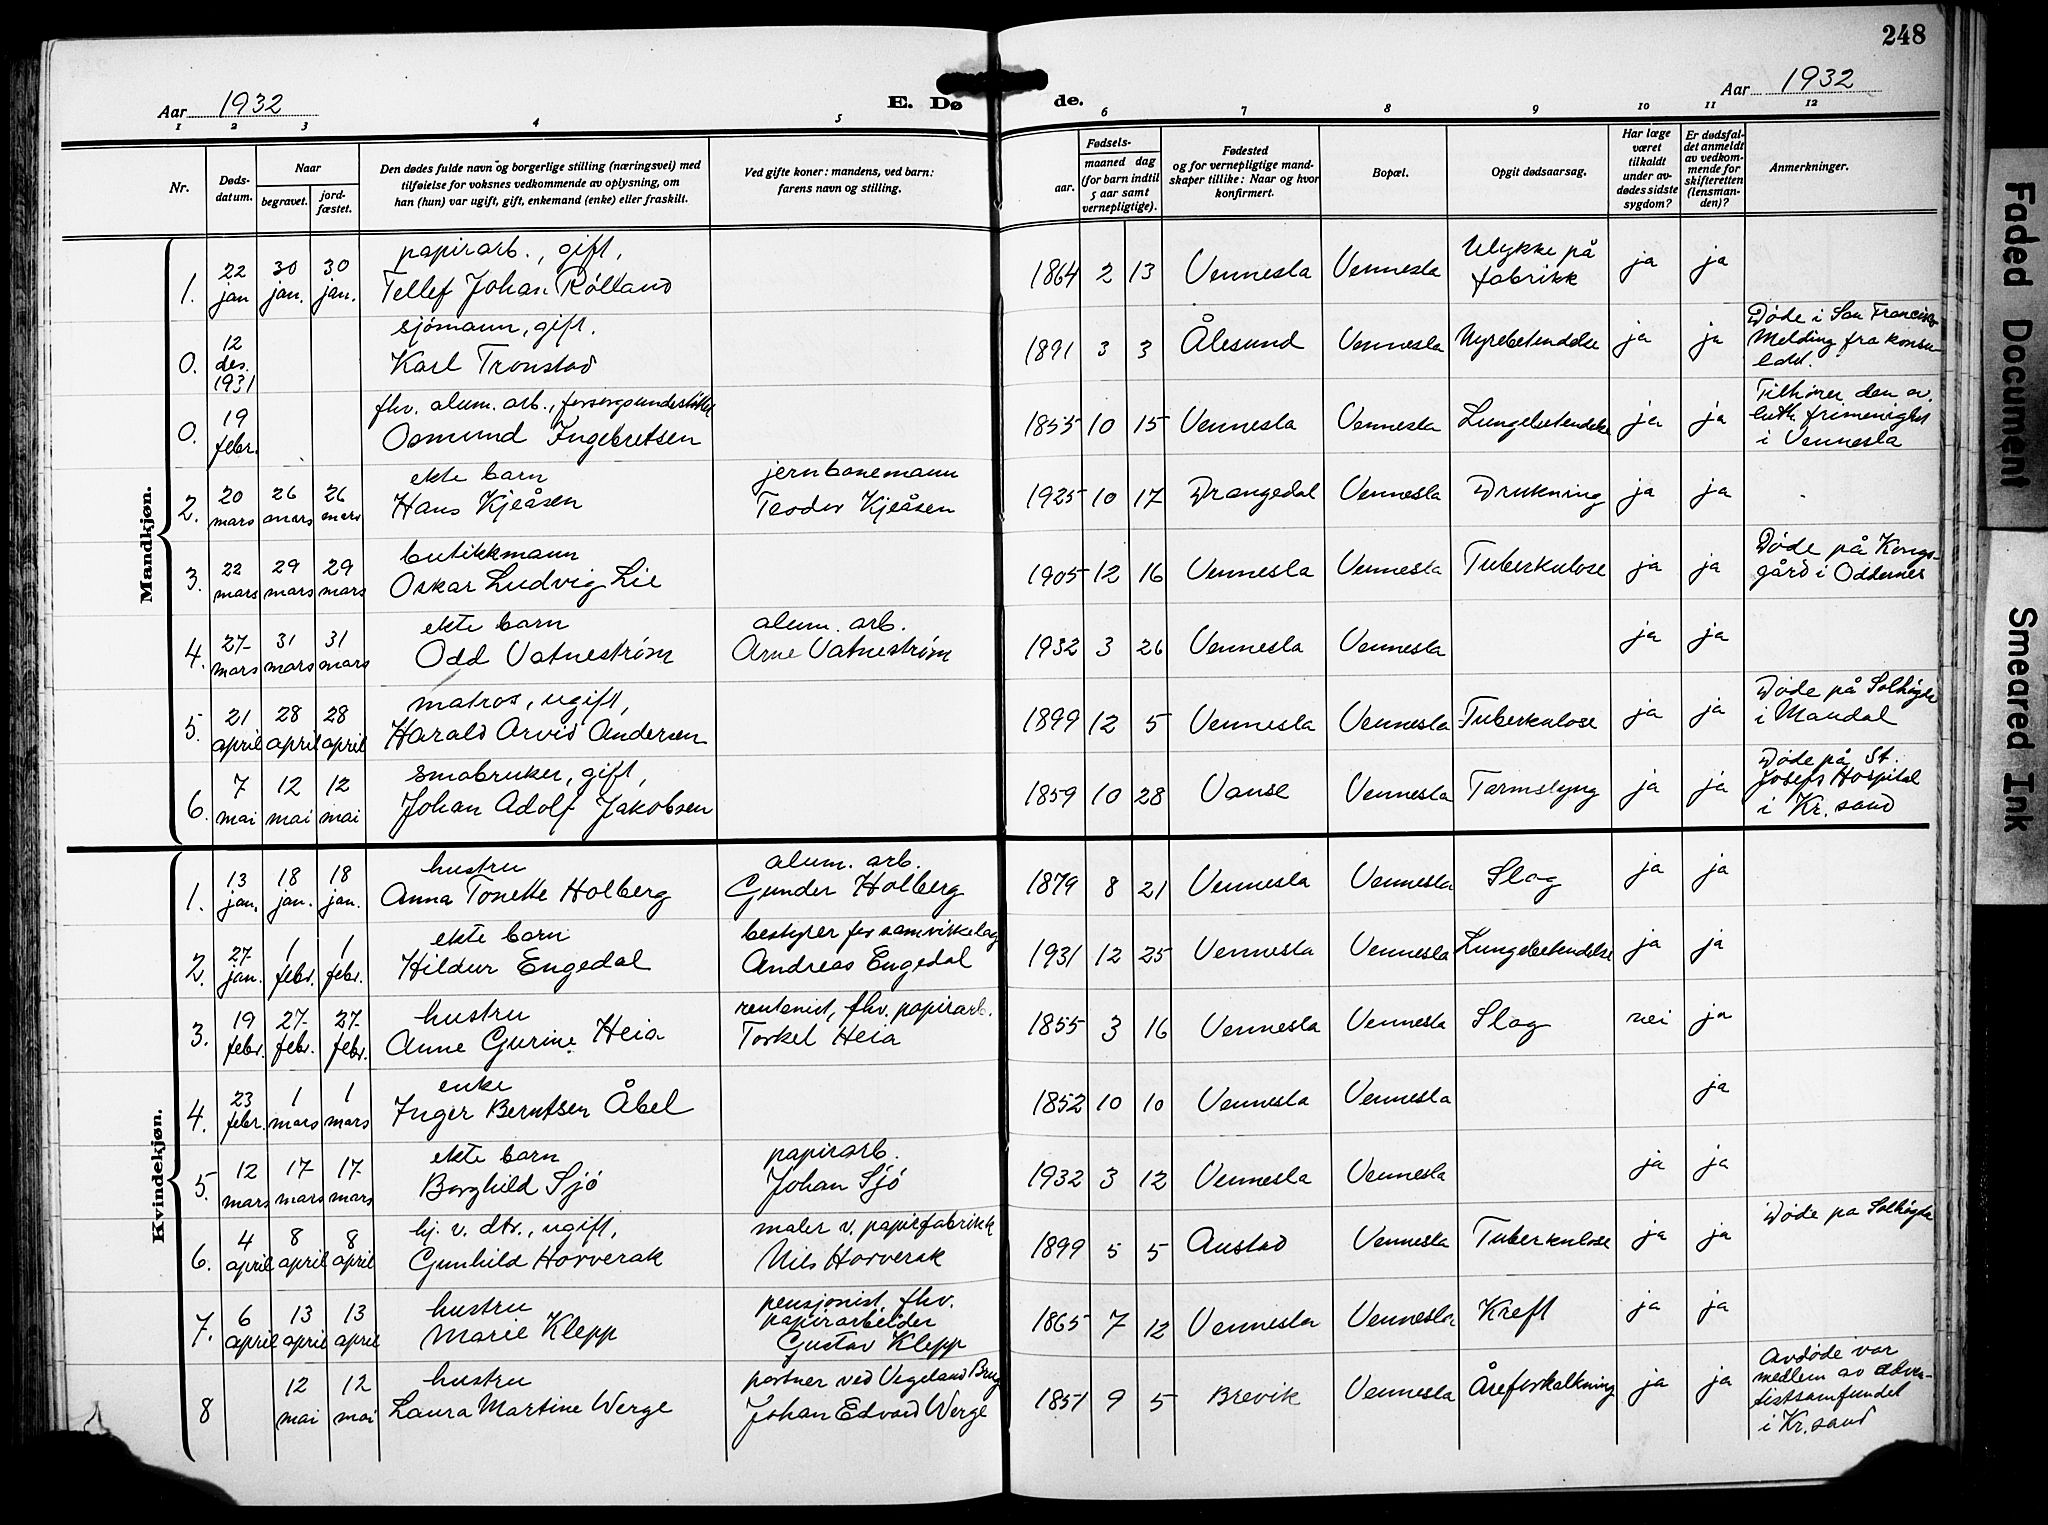 248
Aar 1932
E. Dø de.
Aar 1932
1 2 3 4 5 6 7 8 9 10 11 12
Nr.
Døds-
datum.
Naar
begravet.
jord-
fæstet.
Den dødes fulde navn og borgerlige stilling (næringsvei) med
tilføielse for voksnes vedkommende av oplysning, om
han (hun) var ugift, gift, enkemand (enke) eller fraskilt.
Ved gifte koner: mandens, ved barn:
farens navn og stilling.
Fødsels-
aar.
maaned dag
(for barn indtil
5 aar samt
vernepligtige).
Fødested
og for vernepligtige mand-
skaper tillike: Naar og hvor
konfirmert.
Bopæl.
Opgit dødsaarsag.
Har læge
været
tilkaldt
under av-
dødes sidste
sygdom?
Er dødsfal-
det anmeldt
av vedkom-
mende for
skifteretten
(lensman-
den)?
Anmerkninger.
Mandkjøn.
papirarb., gift,
1. 22 jan 30 jan. 30 jan. Tellef Johan Rølland 1864 2 13 Vennesla Vennesla Ulykke på fabrikk ja ja
sjömann, gift.
0. 12 des. 1931 Karl Tronstad 1891 3 3 Ålesund Vennesla Nyrebetendelse ja ja Døde i San Francisko Melding fra konsu-latet.
fhv. alum. arb., forsorgsunderstöttet
0. 19 febr. Osmund Ingebretsen 1855 10 15 Vennesla Vennesla Lungebetendelse ja ja Tilhörer den ev. luth. frimenighet i Vennesla
ekte barn jernbanemann
2. 20 mars 26 mars 26 mars Hans Kjeåsen Teodor Kjeåsen 1925 10 17 Drangedal Vennesla Drukning ja ja
butikkmann
3. 22 mars 29 mars 29 mars Oskar Ludvig Lie 1905 12 16 Vennesla Vennesla Tuberkulose ja ja Døde på Kongs-gård i Oddernes
ekte barn alum. arb.
4. 27 mars 31 mars 31 mars Odd Vatneström Arne Vatneström 1932 3 26 Vennesla Vennesla ja ja
matros, ugift,
5. 21 april 28 april 28 april Harald Arvid Andersen 1899 12 5 Vennesla Vennesla Tuberkulose ja ja Døde på Solhögda i Mandal
småbruker, gift,
6. 7 mai 12 mai 12 mai Johan Adolf Jakobsen 1859 10 28 Vanse Vennesla Tarmslyng ja ja Døde på St. Josefs Hospital i Kr.sand
Kvindekjøn.
hustru alum. arb.
1. 13 jan. 18 jan. 18 jan. Anna Tonette Holberg Gunder Holberg 1879 8 21 Vennesla Vennesla Slag ja ja
ekte barn bestyrer for samvirkelag
2. 27 jan. 1 febr. 1 febr. Hildur Engedal Andreas Engedal 1931 12 25 Vennesla Vennesla Lungebetendelse ja ja
hustru rentenist, fhv. papirarb.
3. 19 febr. 27 febr. 27 febr. Anne Gurine Heia Torkel Heia 1855 3 16 Vennesla Vennesla Slag nei ja
enke
4. 23 febr. 1 mars 1 mars Inger Berntsen Åbel 1852 10 10 Vennesla Vennesla ja
ekte barn papirarb.
5. 12 mars 17 mars 17 mars Borghild Sjö Johan Sjö 1932 3 12 Vennesla Vennesla ja ja
hj. v. dtr., ugift, maler v. papirfabrikk
6. 4 april 8 april 8 april Gunhild Horverak Nils Horverak 1899 5 5 Austad Vennesla Tuberkulose ja ja Døde på Solhögda
hustru pensjonist, fhv. papirarbeider
7. 6 april 13 april 13 april Marie Klepp Gustav Klepp 1865 7 12 Vennesla Vennesla Kreft ja ja
hustru portner ved Vigeland Brug
8 12 mai 12 mai Laura Martine Werge Johan Edvard Werge 1851 9 5 Brevik Vennesla Åreforkalkning ja ja Avdøde var medlem av adven-tistsamfundet i Kr.sand
Faded Document
Smeared Ink